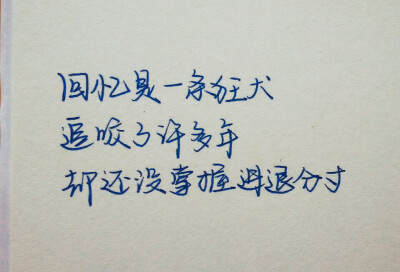 回忆是一条狂犬
追咬了许多年
却还没掌握进退分寸